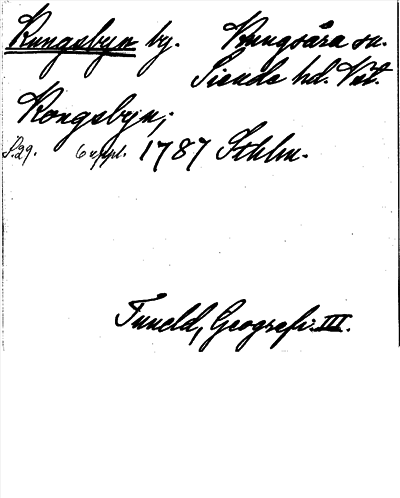 Kungsbyn by. Kungsåra sn.
Siende hd. Vstl.
Kongsbyn;
S.29. 6 uppl. 1787 Sthlm.
Tuneld, Geografi III.